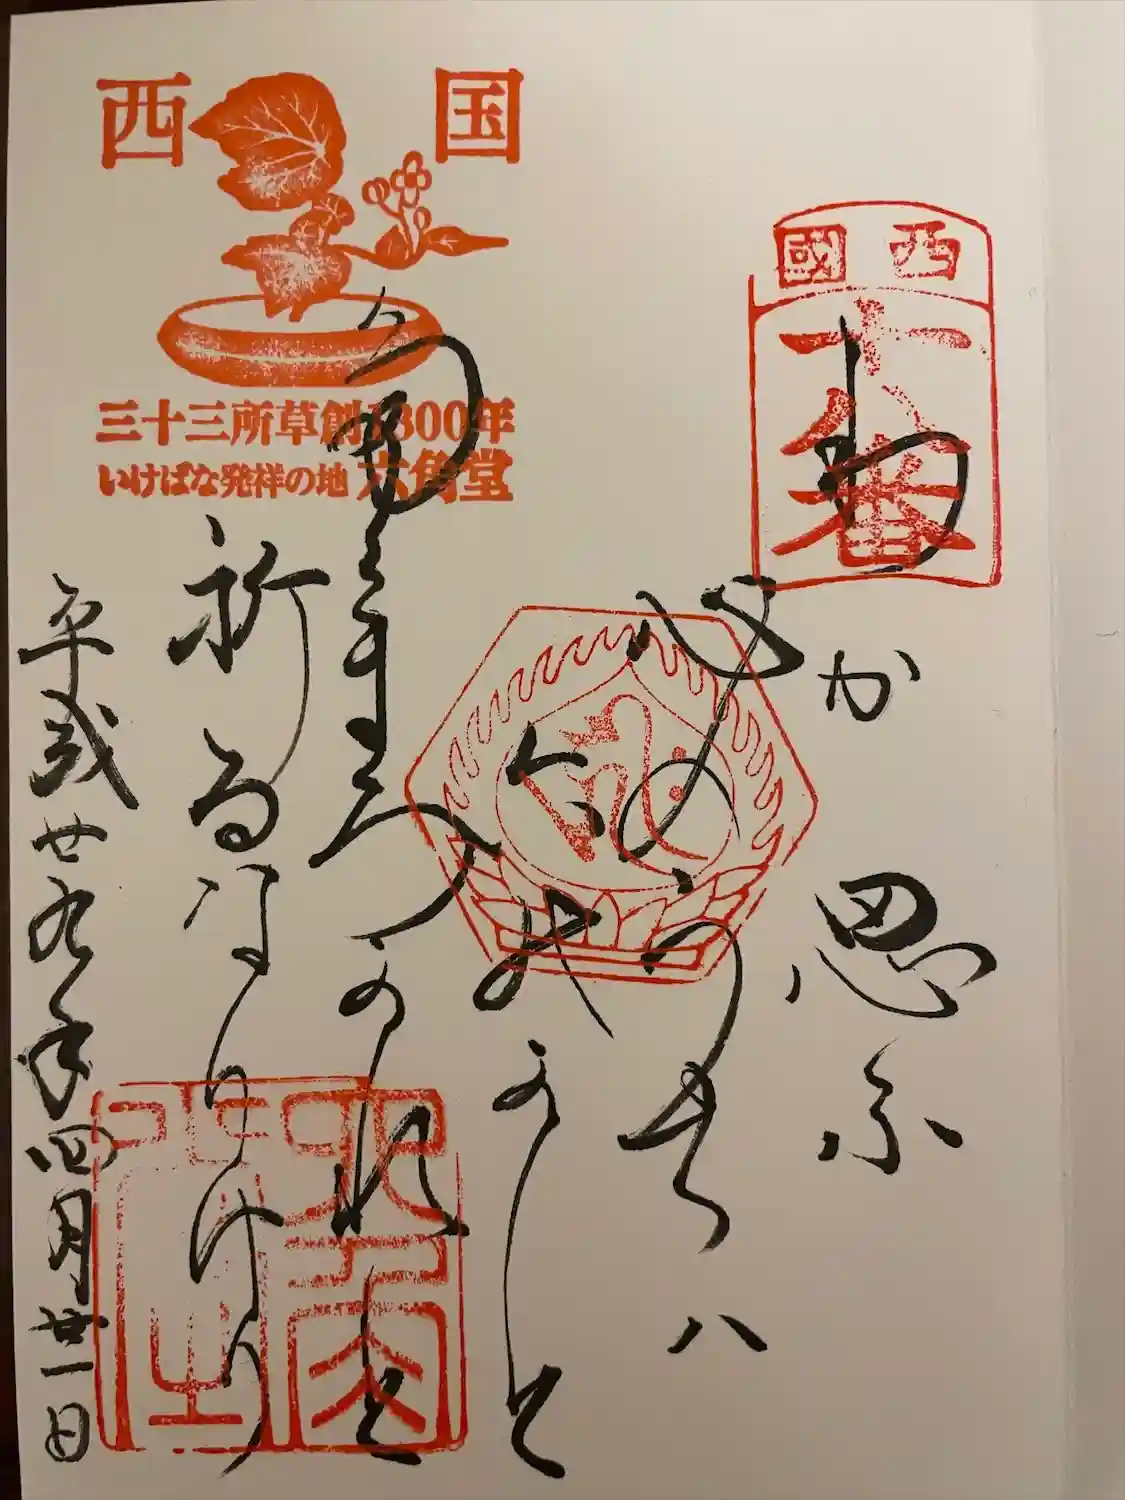 西国
三十三所草創1300年
いけばな発祥の地 六角堂
西國
十八番
わか思ふ
心のうちハ
六のかと
かれと
祈るなりけり
平成廿九年四月廿一日